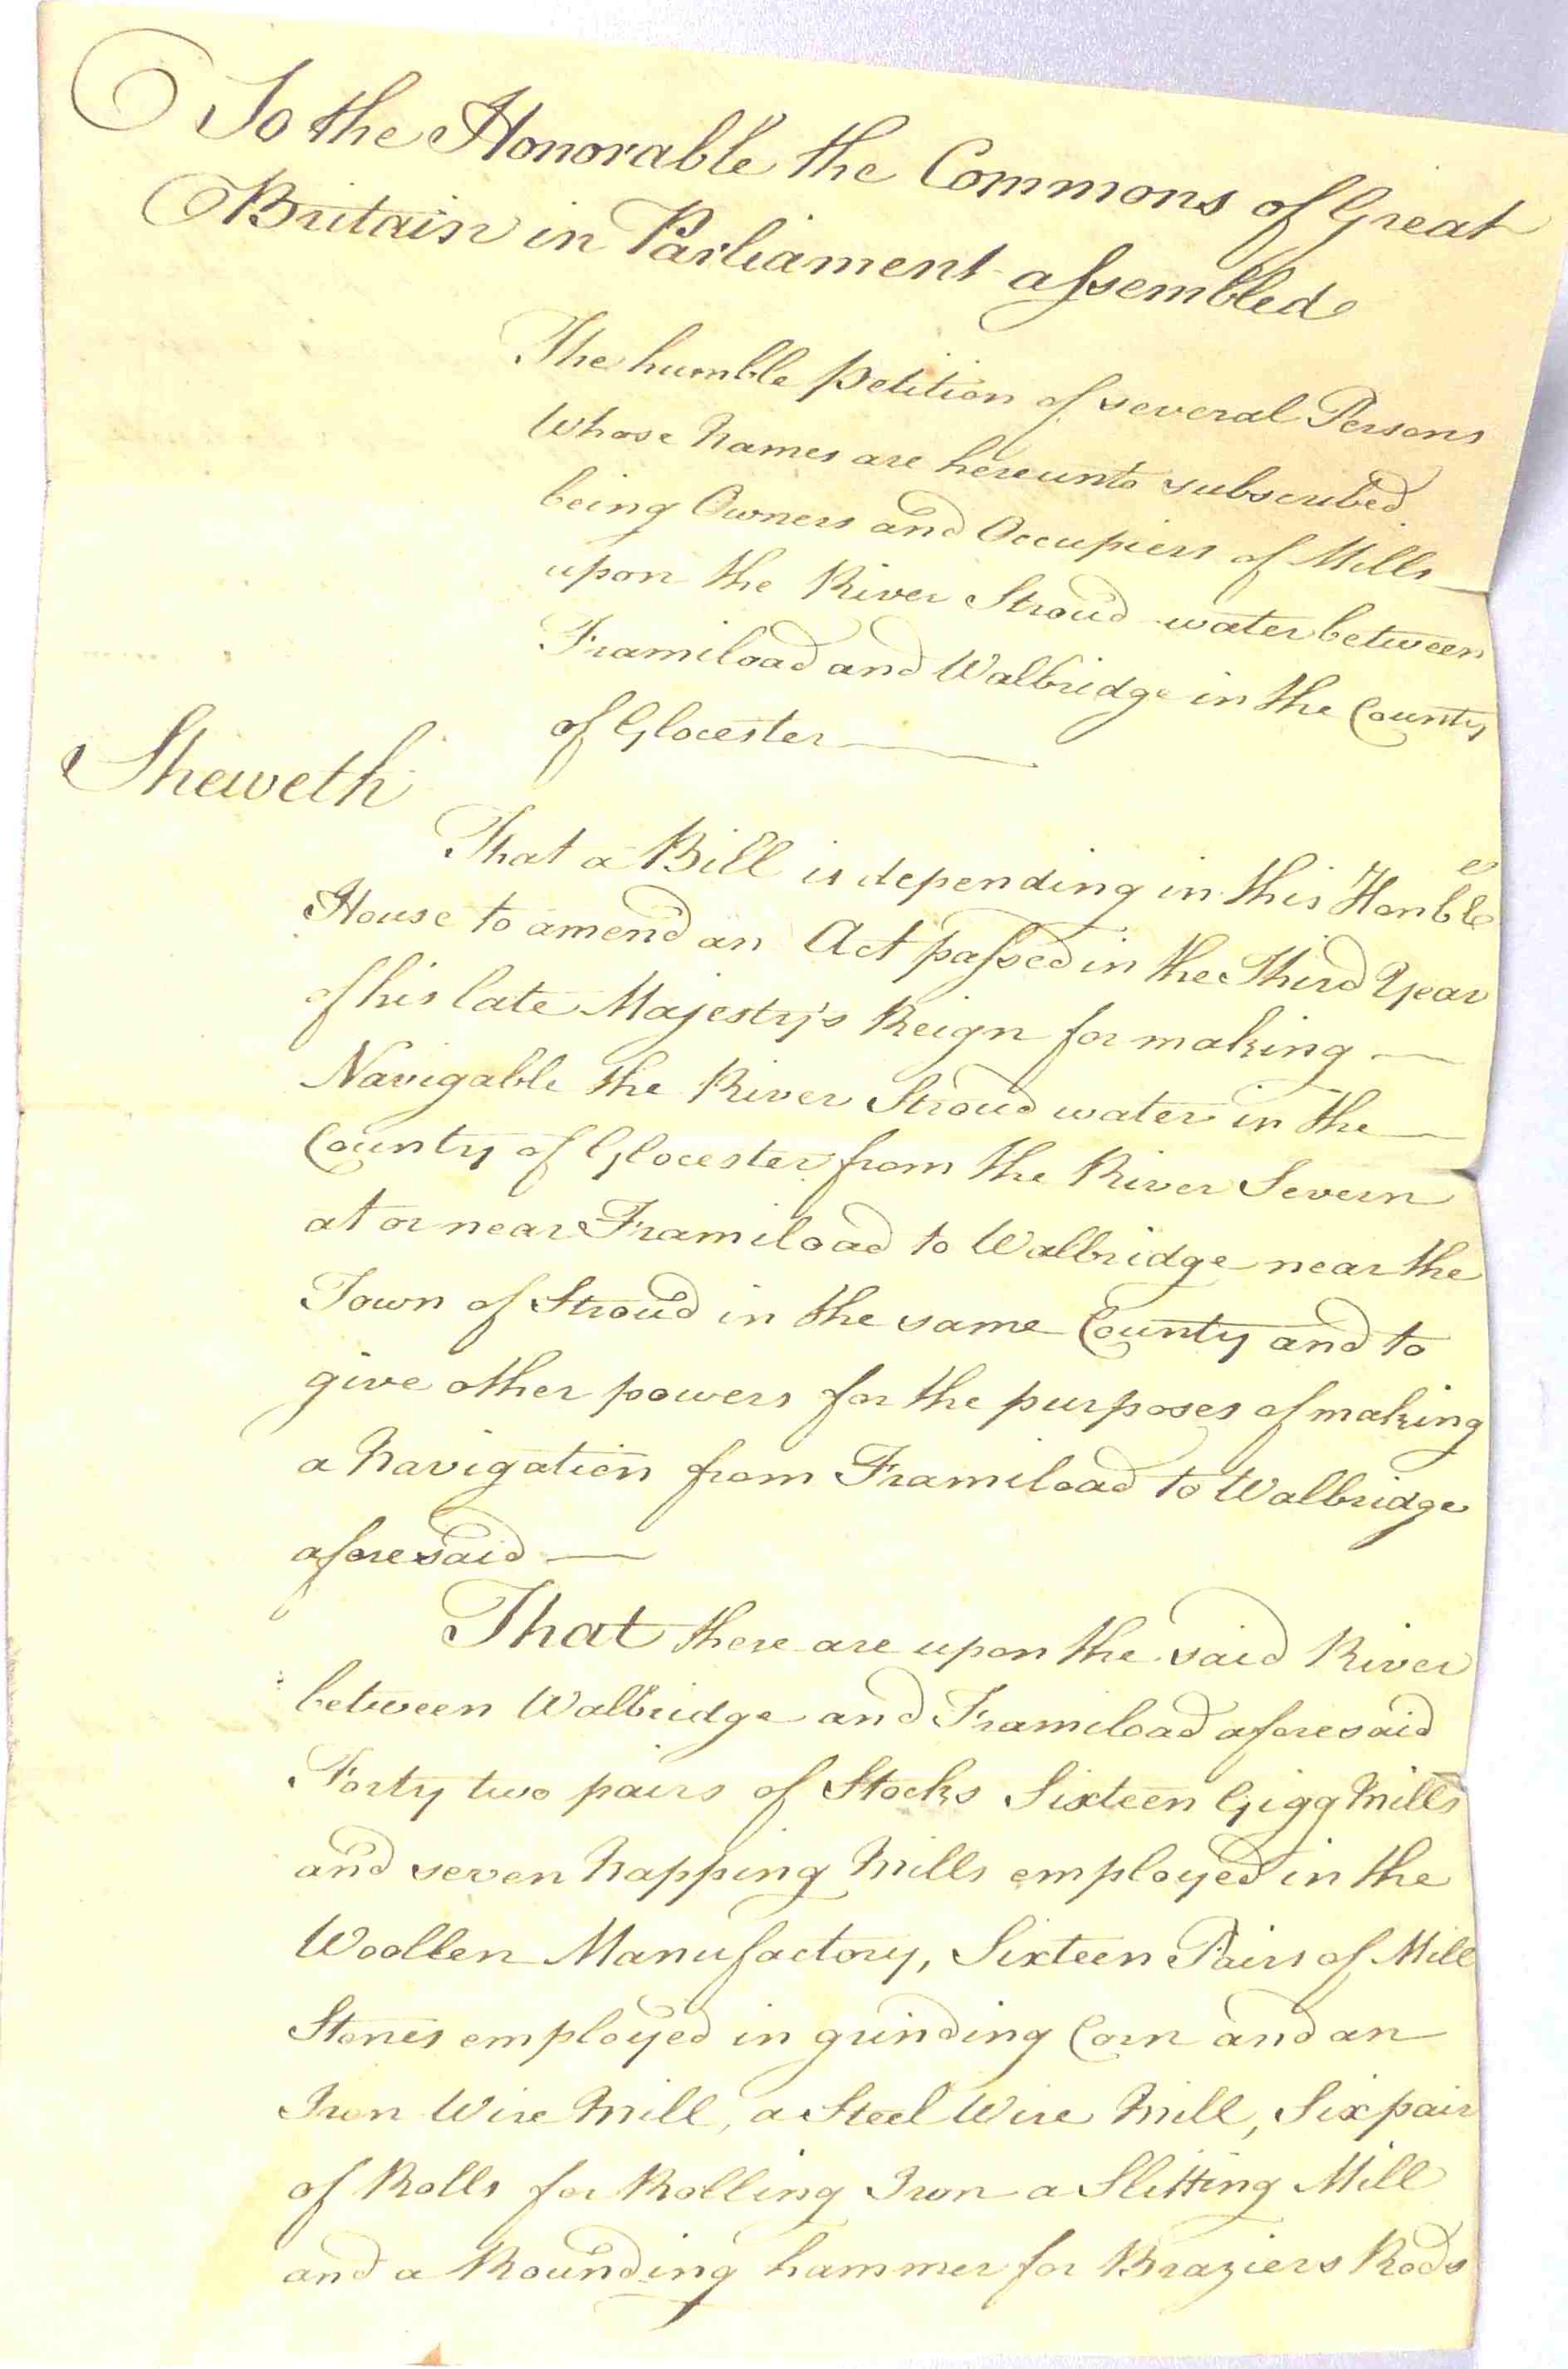 To the Honorable the Commons of Great
Britain in Parliament assembled
The humble petition of several Persons
Whose Names are hereunto subscribed
being Owners and Occupiers of Mills
upon the River Stroud water between
Framiload and Walbridge in the County
of Glocester
Sheweth
That a Bill is depending in this Honble
House to amend an Act passed in the Third Year
of his late Majesty's Reign for making
Navigable the River Stroud water in the
County of Glocester from the River Severn
at or near Framiload to Walbridge near the
Town of Stroud in the same County and to
give other powers for the purposes of making
a Navigation from Framiload to Walbridge
aforesaid
That there are upon the said River
between Walbridge and Framiload aforesaid
Forty two pairs of Stocks Sixteen Gigg Mills
and seven Napping Mills employed in the
Woollen Manufactory, Sixteen Pairs of Mill
Stones employed in grinding Corn and an
Iron Wire Mill, a Steel Wire Mill, Six pair
of Rolls for Rolling Iron a Slitting Mill
and a Rounding hammer for Braziers Rods